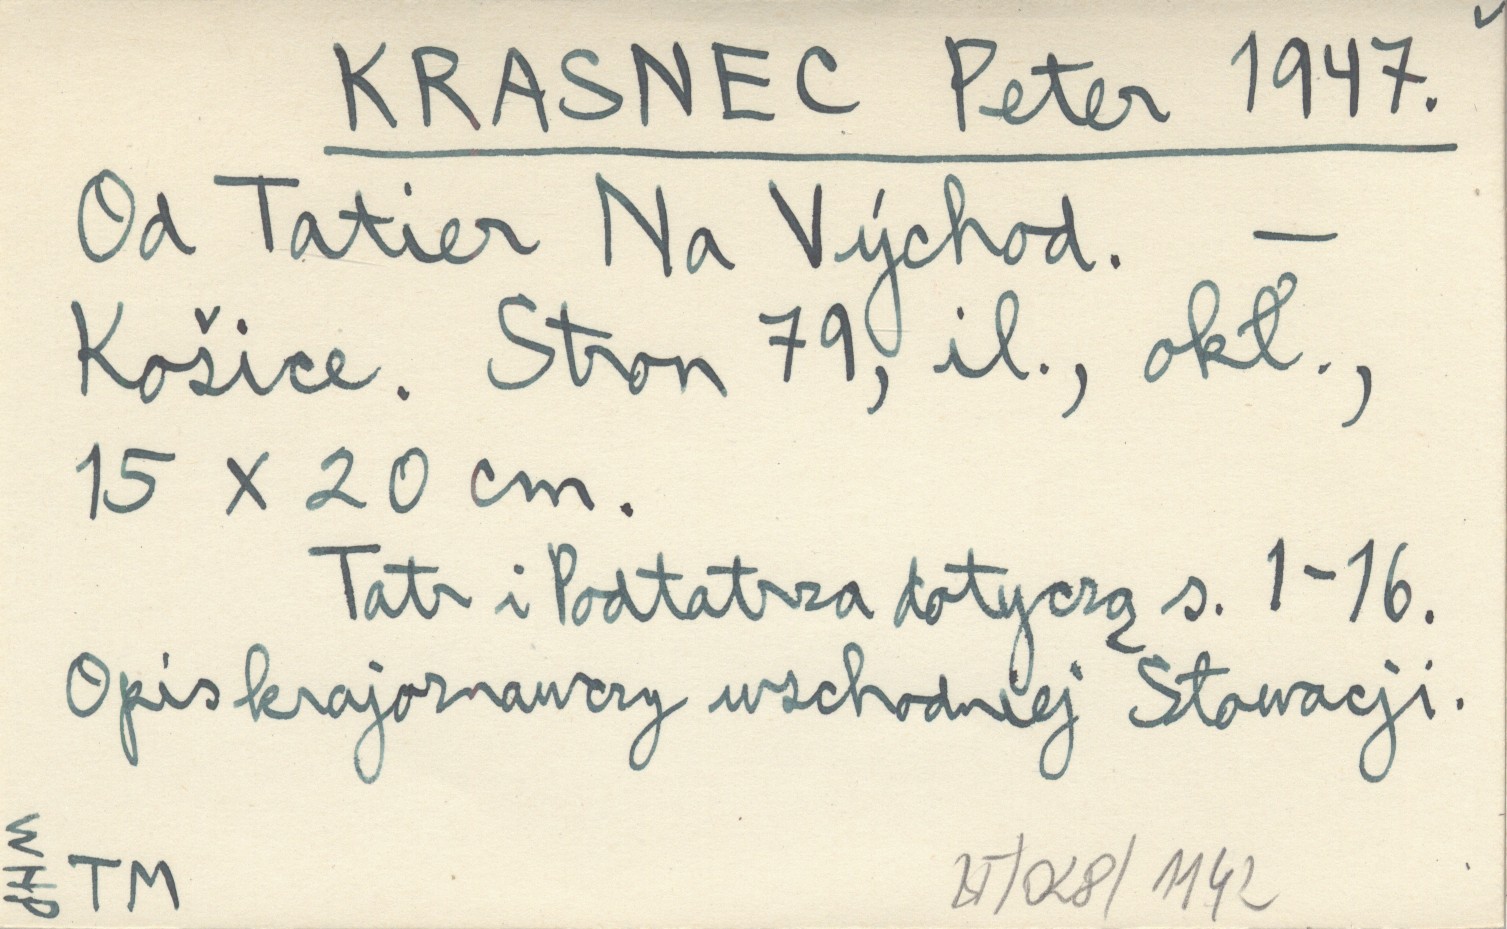 KRASNEC Peter 1947.
Od Tatier Na Východ. —
Košice. Stron 79, il., okł.,
15 x 20 cm.
Tatr i Podtatrza dotyczą s. 1-16.
Opis krajoznawczy wschodniej Słowacji.
WHP
TM
/028/ 1142